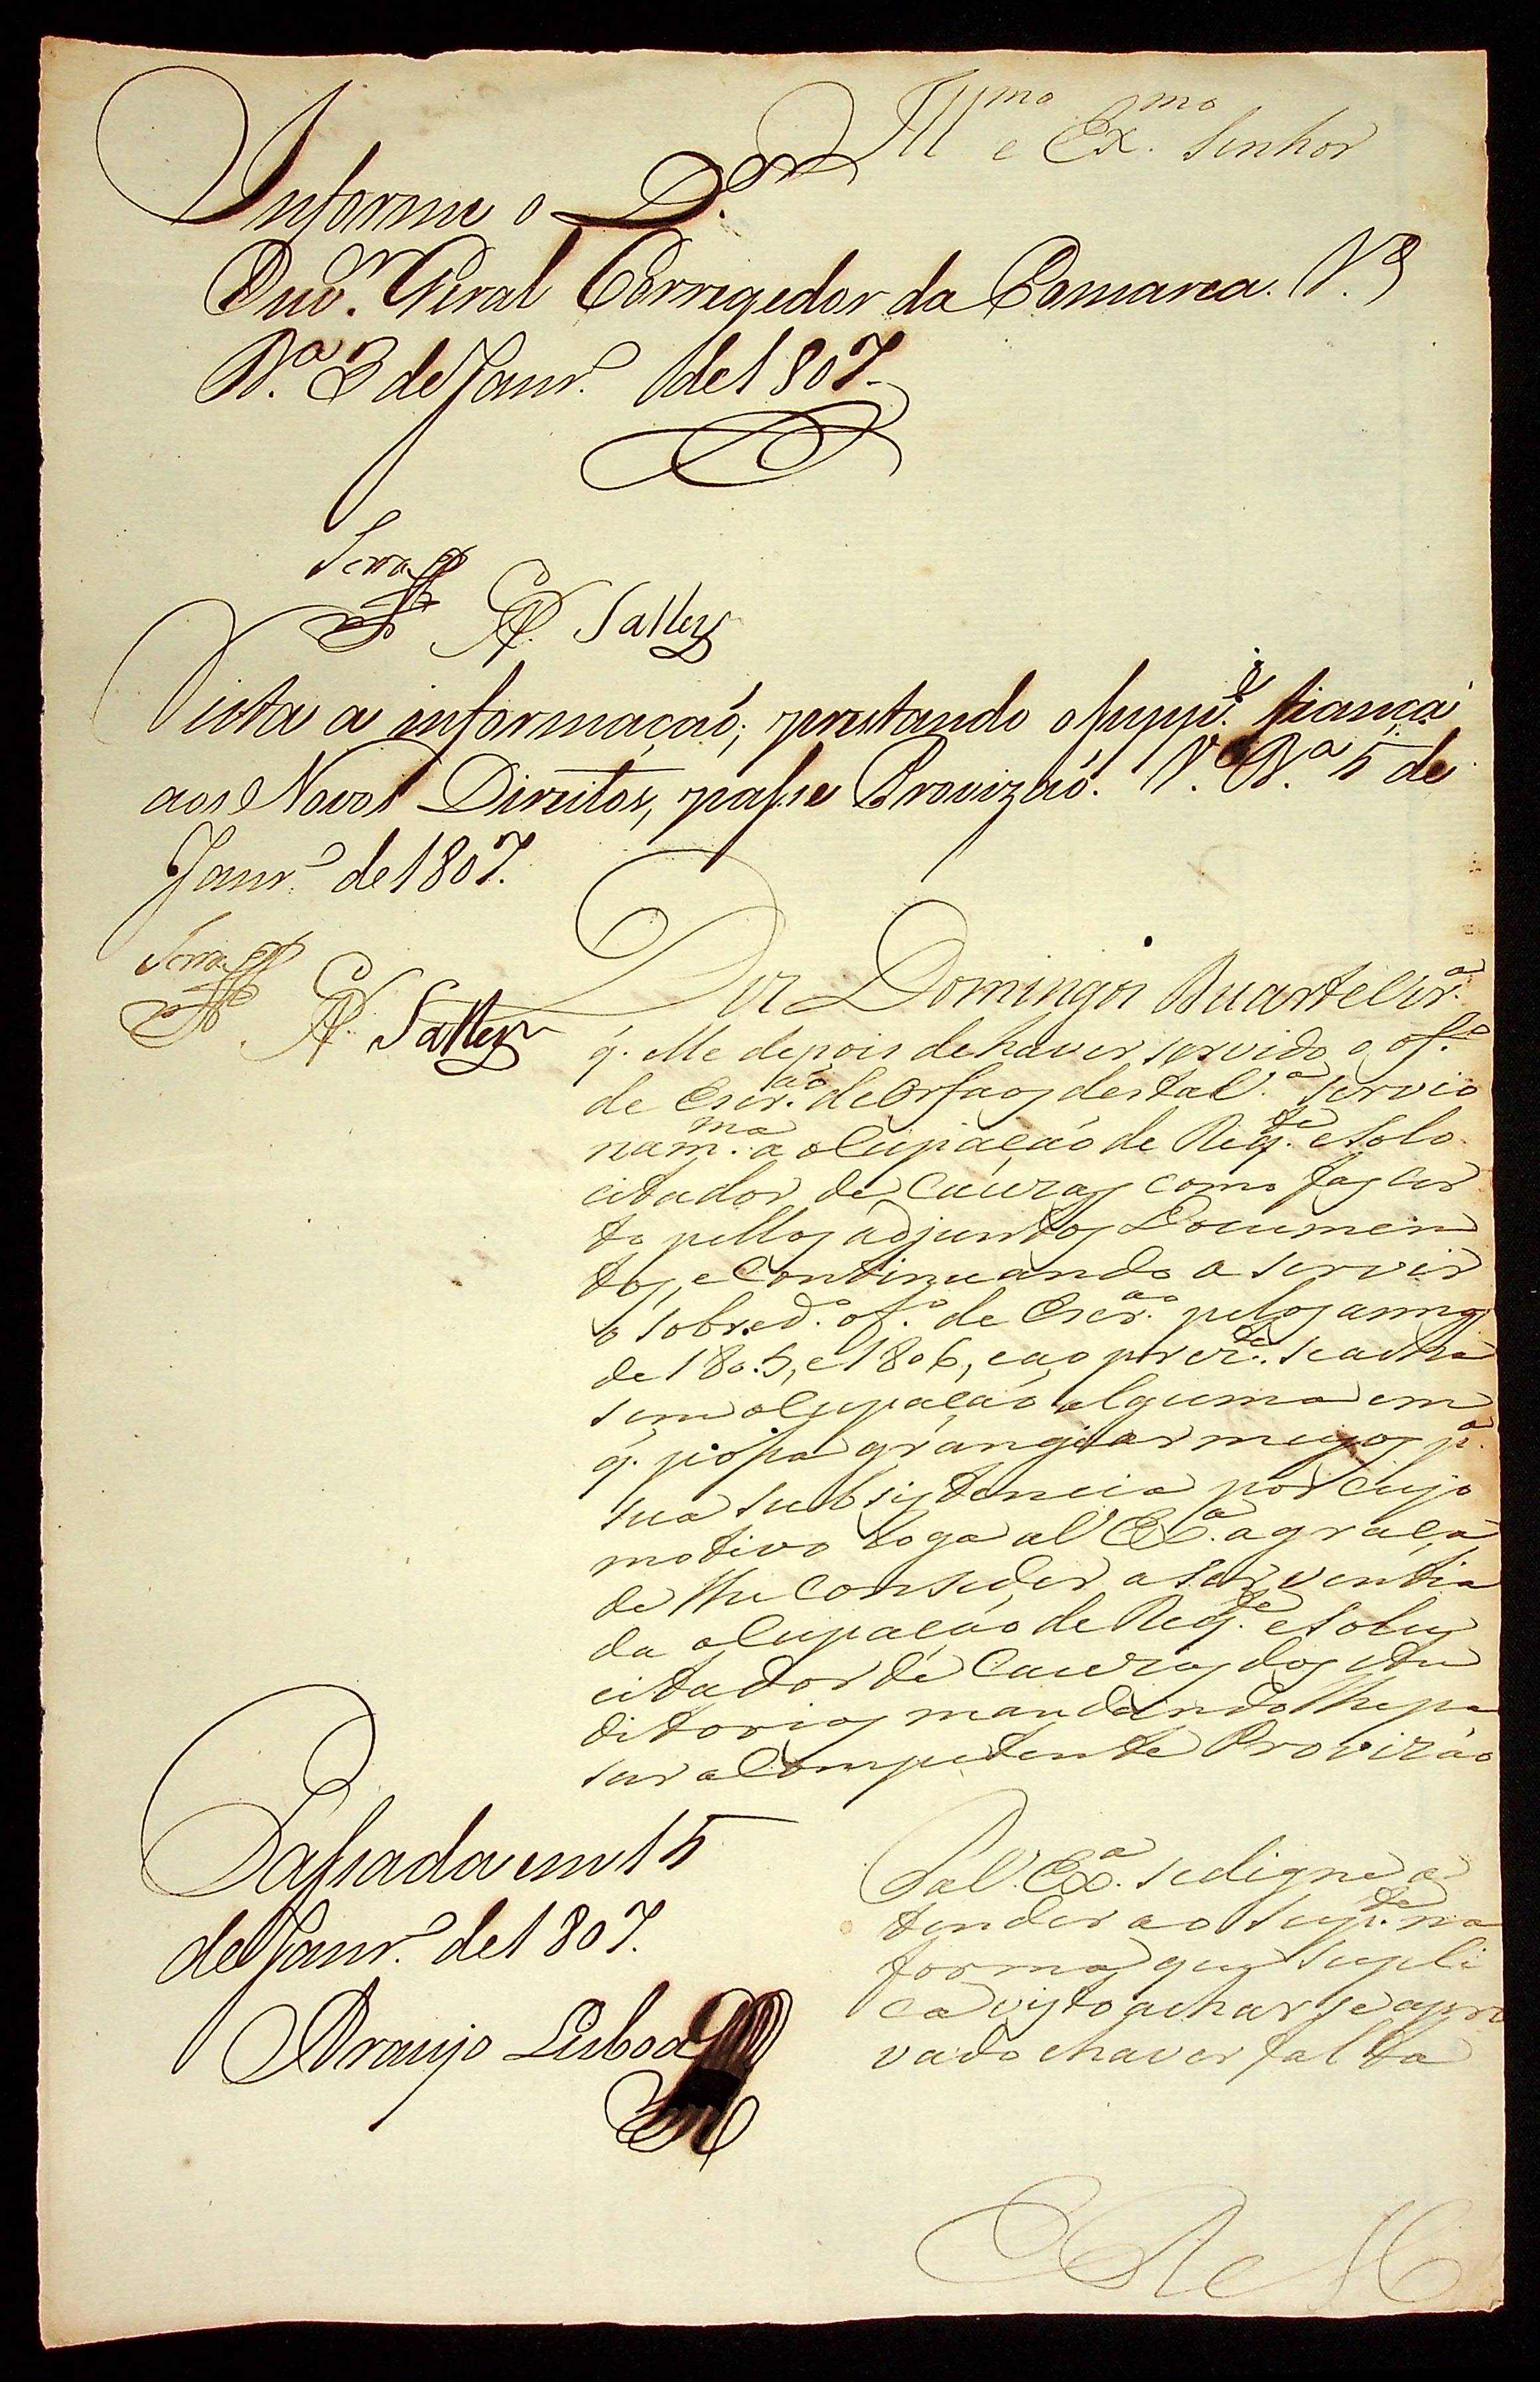 Ill.mo e Ex.mo Senhor
Informe o D.or
Ouv.or Geral Corregedor da Comarca. V.a
R.a 3 de Janr.o de 1807.
Serra
A. Salles
Vista a informaçaõ; prestando o supp.e fiança
aos Novos Direitos, passe Provizaõ. V.a R.a 5 de
Janr.o de 1807.
Serra
A. Salles
Diz Domingos Duarte Cir.a
q. elle depois de haver servido o of.o
de Escr.ão de Orfaos desta V.a servio
na m.ma a ocupação de Req.te e Solo
citador de Cauzas como fas cer
to pellos adjuntos Documen
tos, e Continuando a servir
o sobred.o of.o de Escr.ão pelos annos
de 1805, e 1806, e ao prez.te se acha
sem ocupação alguma em
q. possa grangear meyos p.a
sua subsistencia por Cujo
motivo roga a V. Ex.a a graça
de lhe Conseder a serventia
da ocupação de Req.te e Soly
citador de Cauzas dos Au
ditorios mandando lhe pa
sar a Competente Provizão
P. a V. Ex.a se digne a
tender ao Sup.te na
forma que supli
ca visto achar se apro
vado e haver falta
Passada em 15
de Janr.o de 1807.
Araujo Lisboa
E R M